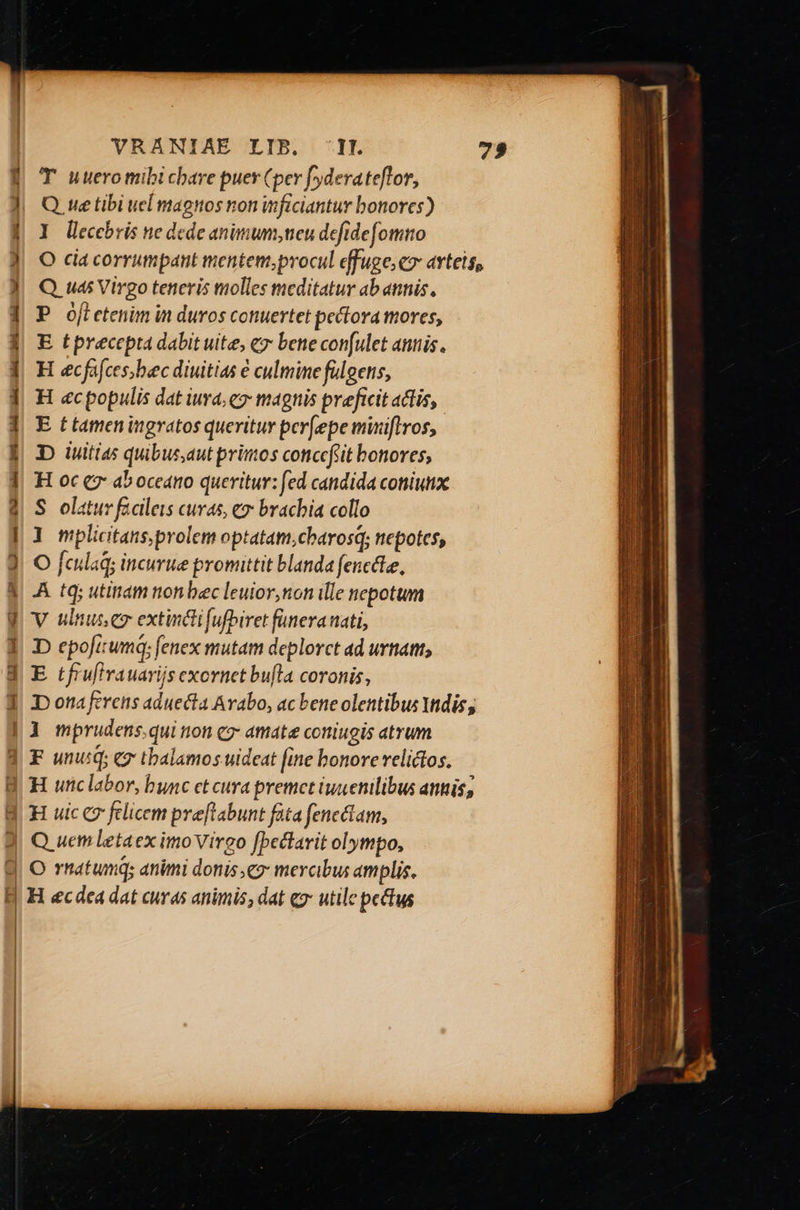 VRANIAE LIB. II. 79
T u uero mihi chare puer (per ſydera teſtor,
Q uæ tibi uel magnos non inficiantur honores)
I llecebris ne dede animum, neu deſide ſomno
O cia corrumpant mentem, procul effuge, & arteis,
Q uas Virgo teneris molles meditatur ab annis.
P oſt etenim in duros conuertet pectora mores,
E t præcepta dabit uitæ, & bene conſulet annis.
H æc faſces, hæc diuitias è culmine fulgens,
H æc populis dat iura, & magnis præficit actis,
E t tamen ingratos queritur perſæpe miniſtros,
D iuitias quibus, aut primos conceſsit honores,
H oc & ab oceano queritur: ſed candida coniunx
S olatur facileis curas, & brachia collo
I mplicitans, prolem optatam, charosq; nepotes,
O ſculaq; incuruæ promittit blanda ſenectæ,
A tq; utinam non hæc leuior, non ille nepotum
V ulnus, & extincti ſuſpiret funera nati,
D epoſitumq; ſenex mutam deploret ad urnam,
E t fruſtra uarijs exornet buſta coronis,
D ona ferens aduecta Arabo, ac bene olentibus Indis,
I mprudens, qui non & amatæ coniugis atrum
F unusq; & thalamos uideat ſine honore relictos.
H unc labor, hunc et cura premet iuuenilibus annis,
H uic & felicem præſtabunt fata ſenectam,
Q uem læta ex imo Virgo ſpectarit olympo,
O rnatumq; animi donis, & mercibus amplis.
H æc dea dat curas animis, dat & utile pectus